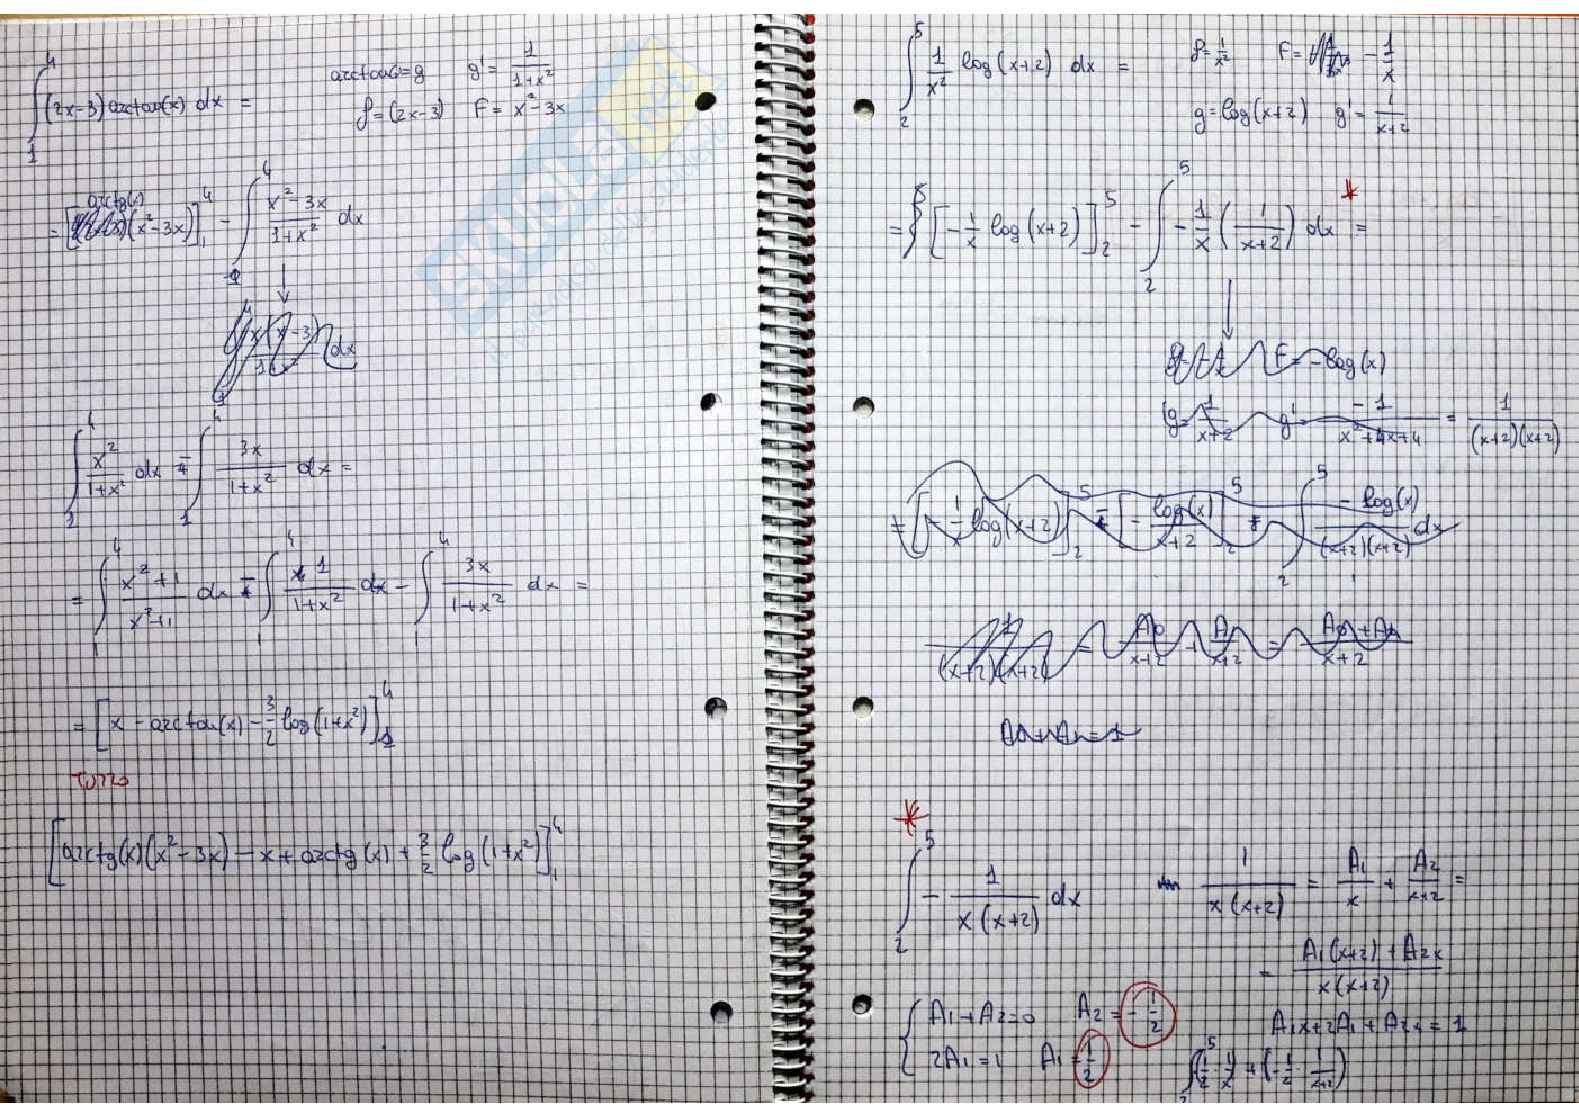 ∫₁⁴ (2x-3) arctan(x) dx =
arctan(x)=g   g' = 1/(1+x²)
f=(2x-3)   F = x²-3x
= [arctg(x) (x²-3x)]₁⁴ - ∫₁⁴ (x²-3x)/(1+x²) dx
↓
x(x-3) dx
∫₁⁴ x²/(1+x²) dx - ∫₁⁴ 3x/(1+x²) dx =
= ∫₁⁴ (x²+1)/(x²+1) dx - ∫₁⁴ 1/(1+x²) dx - ∫₁⁴ 3x/(1+x²) dx =
= [x - arctan(x) - 3/2 log(1+x²)]₁⁴
TUTTO
[arctg(x)(x²-3x) - x + arctg(x) + 3/2 log(1+x²)]₁⁴
SKUOLA.net
∫₂⁵ 1/x² log(x+2) dx =
f = 1/x²   F = -1/x
g = log(x+2)   g' = 1/(x+2)
= [-1/x log(x+2)]₂⁵ - ∫₂⁵ -1/x (1/(x+2)) dx * =
↓
F = -log(x)
g = 1/(x+2)   g' = -1/(x²+4x+4) = 1/((x+2)(x+2))
= [-1/x log(x+2)]₂⁵ - [-log(x)/(x+2)]₂⁵ ∫₂⁵ -log(x)/((x+2)(x+2)) dx
1/((x+2)(x+2)) = A₀/(x+2) + A₁/(x+2) = (A₀+A₁)/(x+2)
*
∫₂⁵ - 1/(x(x+2)) dx
1/(x(x+2)) = A₁/x + A₂/(x+2) =
= (A₁(x+2) + A₂x)/(x(x+2))
A₁x+2A₁+A₂x = 1
{ A₁+A₂=0   A₂ = -1/2
2A₁=1   A₁ = 1/2
∫₂⁵ (1/2 · 1/x) + (-1/2 · 1/(x+2))